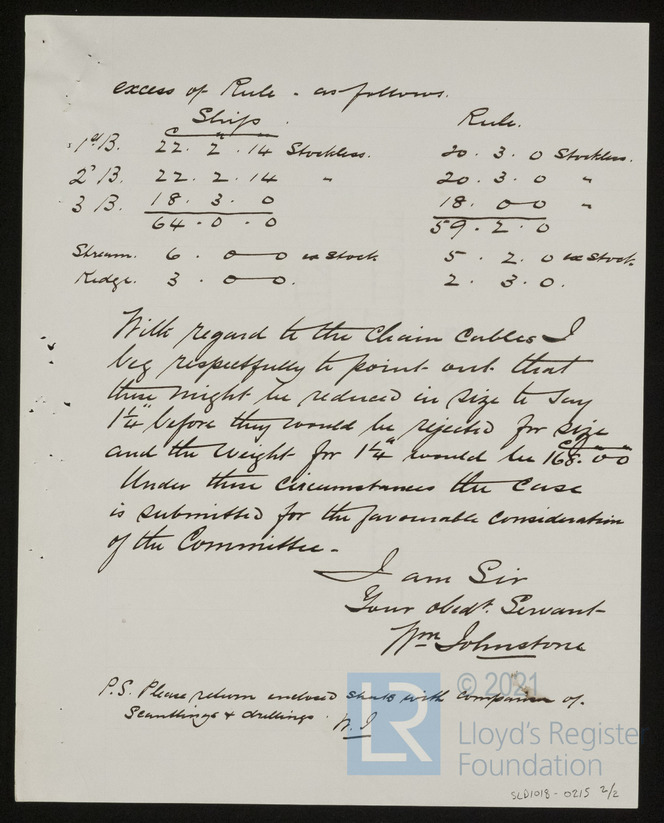 excess of Rule - as follows.
Ship. Rule.
C " "
1st B. 22. 2. 14 Stockless. 20. 3. 0 Stockless.
2d B. 22. 2. 14 " 20. 3. 0 "
3 B. 18. 3. 0 18. 0 0 "
64. 0. 0 59. 2. 0
Stream. 6. 0 0 ex Stock 5. 2. 0 ex Stock.
Kedge. 3. 0 0. 2. 3. 0.
With regard to the Chain Cables I
beg respectfully to point out that
these might be reduced in size to say
1¼" before they would be rejected for size
and the weight for 1¼" would be 168. 0 0
Under these circumstances the case
is submitted for the favourable consideration
of the Committee -
I am Sir
Your obedt. Servant
Wm Johnstone
P.S. Please return enclosed with of.
Scantlings & W. J
© 2021
LR
Lloyd's Register
Foundation
SLD1018 - 0215 2/2